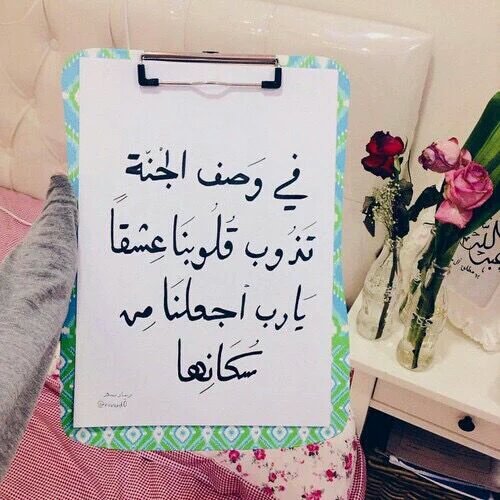 في وَصف الجنّة
تَذُوب قُلُوبنَا عِشقاً
يَارب اجعلنَا من
سُكانِها